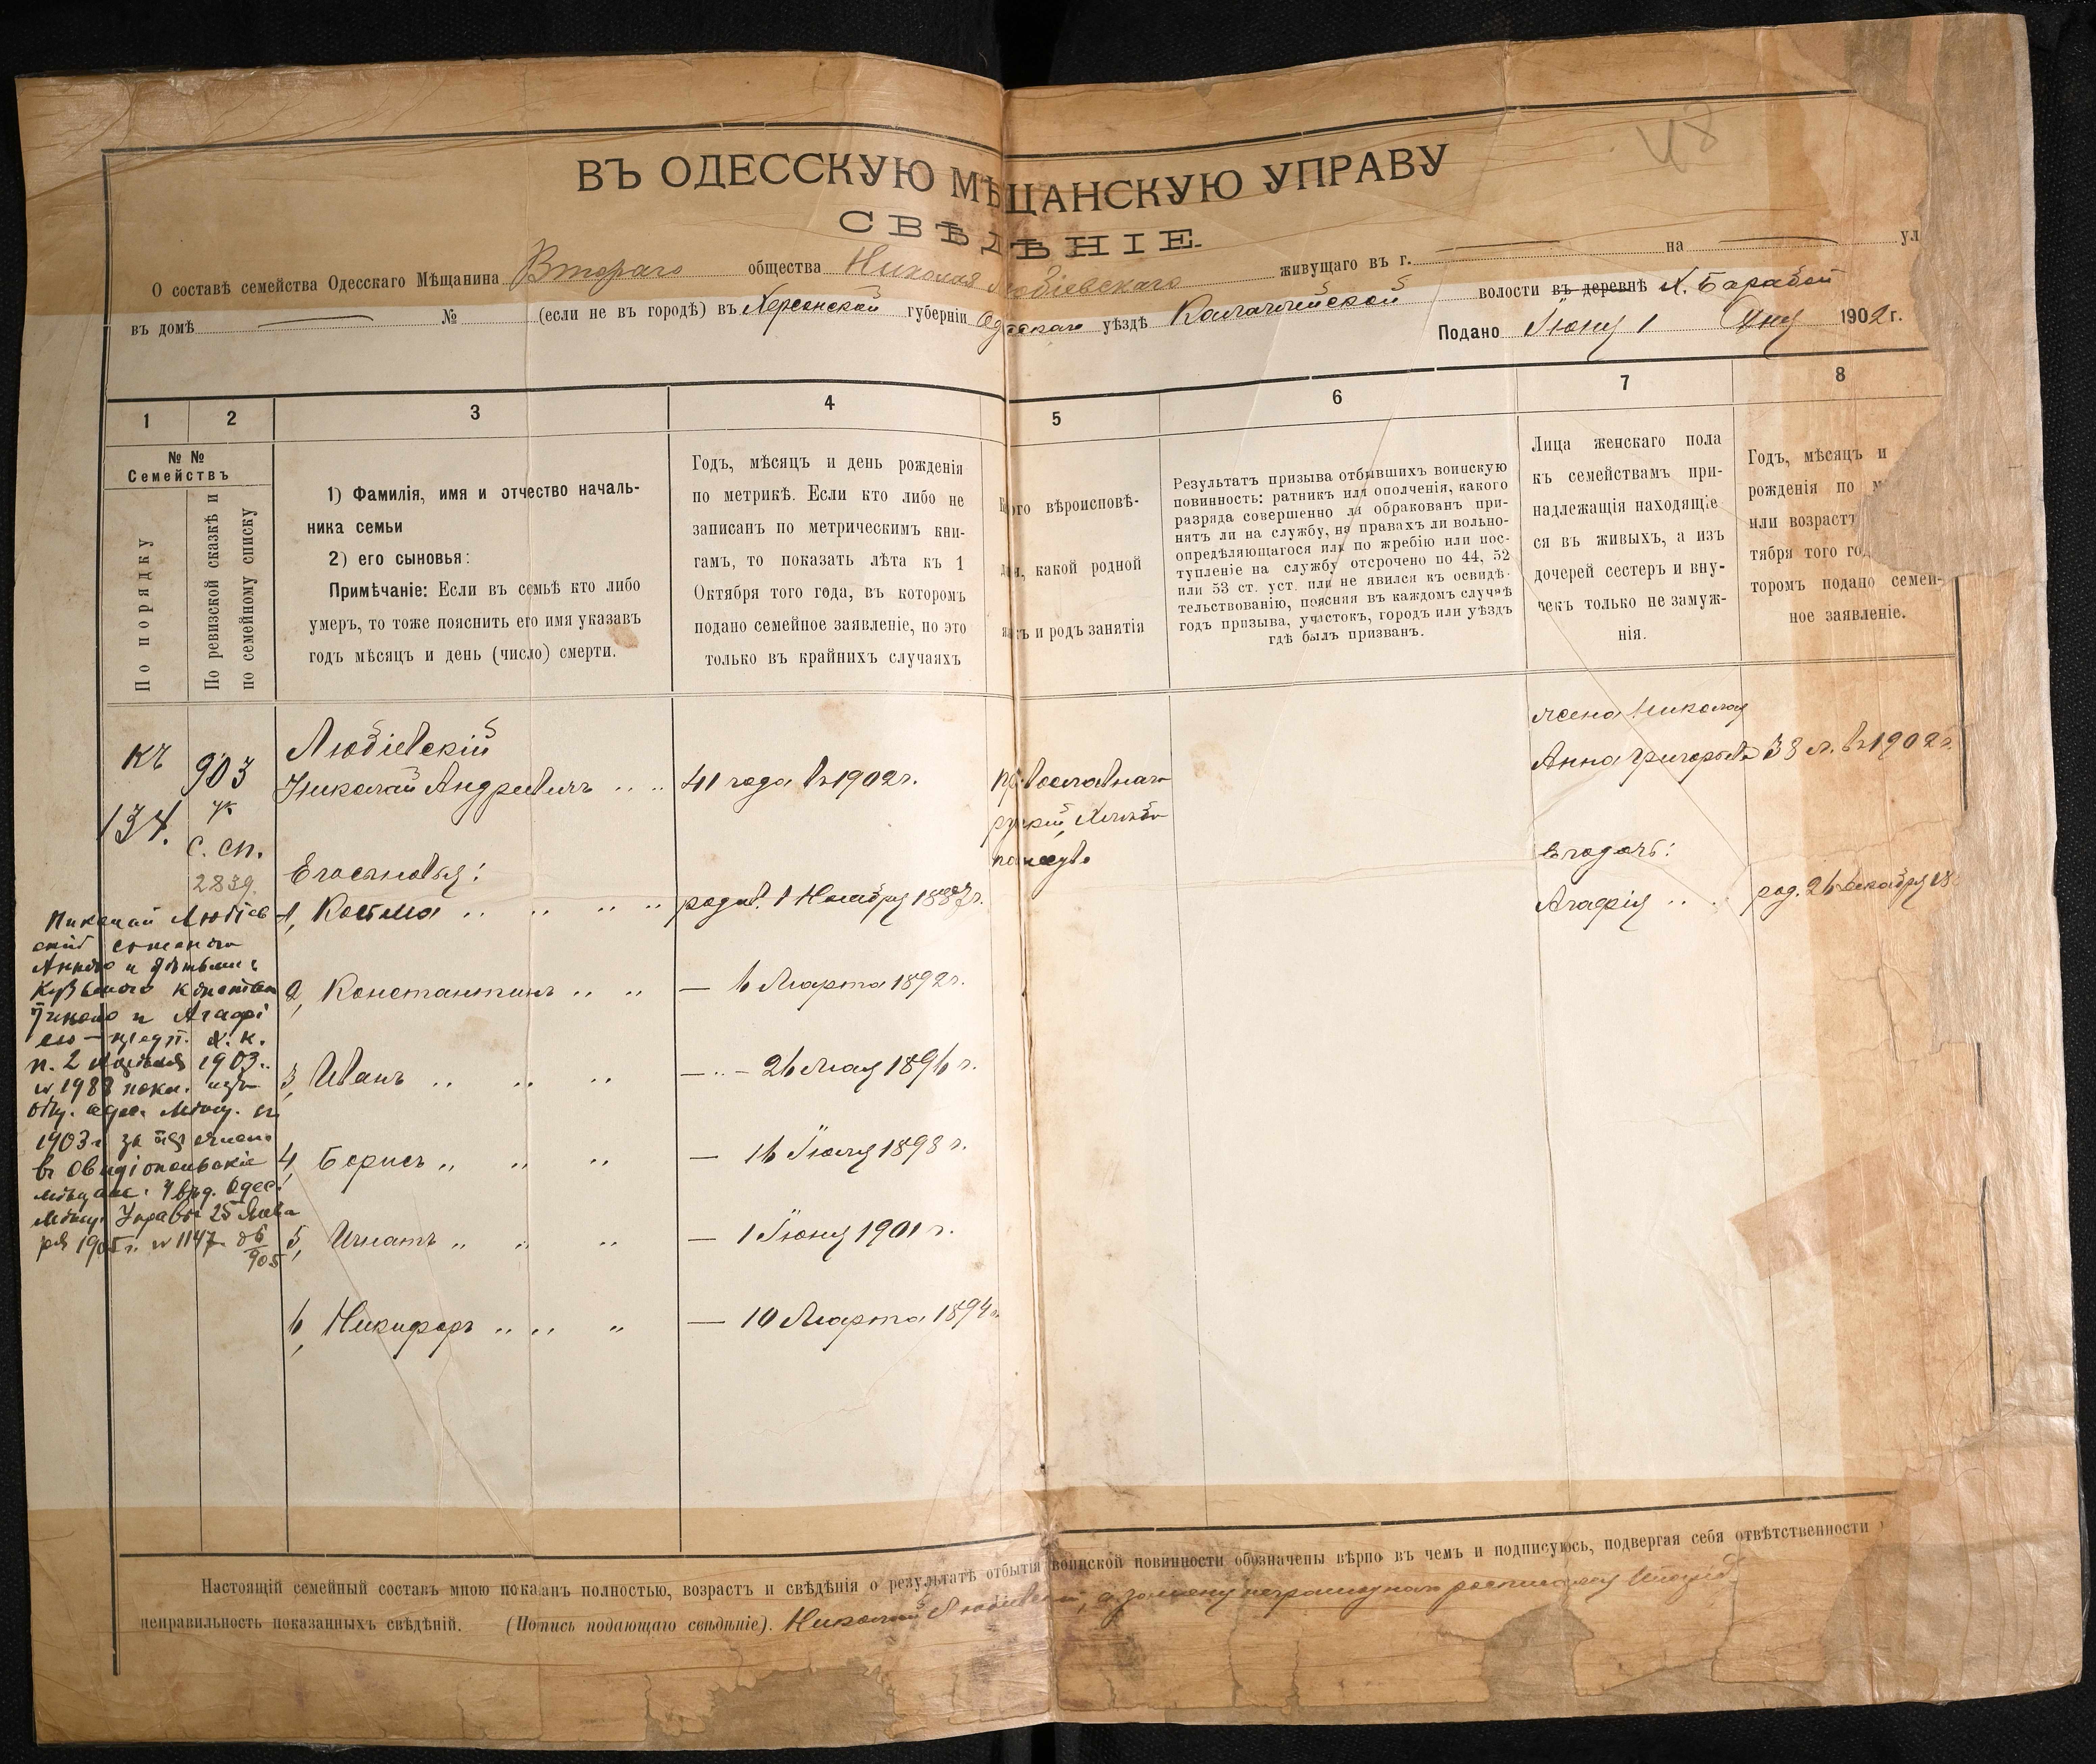 48
ВЪ ОДЕССКУЮ МѢЩАНСКУЮ УПРАВУ
СВѢДѢНІЕ.
О составѣ семейства Одесскаго Мѣщанина Втораго общества Николая Любіевскаго живущаго въ г. на ул
въ домѣ № (если не въ городѣ) въ Херсонской губерніи Одесскаго уѣздѣ волости въ деревнѣ Х. Барабой
Подано Іюня 1 дня 1902 г.
1 2 3 4 5 6 7 8
№ №
Семействъ
По порядку
По ревизской сказкѣ и
по семейному списку
1) Фамилія, имя и отчество началь-
ника семьи
2) его сыновья:
Примѣчаніе: Если въ семьѣ кто либо
умеръ, то тоже пояснить его имя указавъ
годъ мѣсяцъ и день (число) смерти.
Годъ, мѣсяцъ и день рожденія
по метрикѣ. Если кто либо не
записанъ по метрическимъ кни-
гамъ, то показать лѣта къ 1
Октября того года, въ которомъ
подано семейное заявленіе, но это
только въ крайнихъ случаяхъ
вѣроисповѣ-
какой родной
и родъ занятія
Результатъ призыва отбывшихъ воинскую
повинность: ратникъ или ополченія, какого
разряда совершенно ли обракованъ при-
нятъ ли на службу, на правахъ ли вольно-
опредѣляющагося или по жребію или пос-
тупленіе на службу отсрочено по 44, 52
или 53 ст. уст. или не явился къ освидѣ-
тельствованію, поясняя въ каждомъ случаѣ
годъ призыва, участокъ, городъ или уѣздъ
гдѣ былъ призванъ.
Лица женскаго пола
къ семействамъ при-
надлежащія находящіе
ся въ живыхъ, а изъ
дочерей сестеръ и вну-
чекъ только не замуж-
нія.
Годъ, мѣсяцъ и
рожденія по м
или возрастъ
тября того го
торомъ подано семей-
ное заявленіе.
къ
134.
903
с. сп.
2839.
Любіевскій
Николай Андреевичъ .. .. 41 года въ 1902 г.
православнаго
рускій, Хлѣбо
пашество
жена Николая
Анна Григорьева 38 л. въ 1902 г.
Его сыновья:
1, Косьма .. .. .. .. родив. 1 Ноября 1887 г.
Его дочь:
Агафія .. род. 26 декабря 18
2, Константинъ .. .. — 6 Марта 1892 г.
3, Иванъ .. .. .. — .. — 26 Мая 1896 г.
4, Борисъ .. .. .. — 16 Іюля 1898 г.
5, Игнатъ .. .. .. — 1 Іюня 1901 г.
6, Никифоръ .. .. .. — 10 Марта 1894 г.
Николай Любіев
скій с женою
Анною и дѣтьми:
Кузьмою Констан
тиномъ и Агафі
ею — п. Х. К.
п. 2 1903 г.
№ 1988 изъ
общ. одес. Мѣщ. съ
1903 г. за
въ Овидіопольскіе
мѣщане. Одес.
Мѣщ. Управы 25 Янва
ря 1905 г. № 1147
905
Настоящій семейный составъ мною показанъ полностью, возрастъ и свѣдѣнія о результатѣ отбытія воинской повинности обозначены вѣрно въ чемъ и подписуюсь, подвергая себя отвѣтственности
неправильность показанныхъ свѣдѣній. (Попись подающаго свѣдѣніе). Николай Любіевскій, а за него неграмотнаго росписался